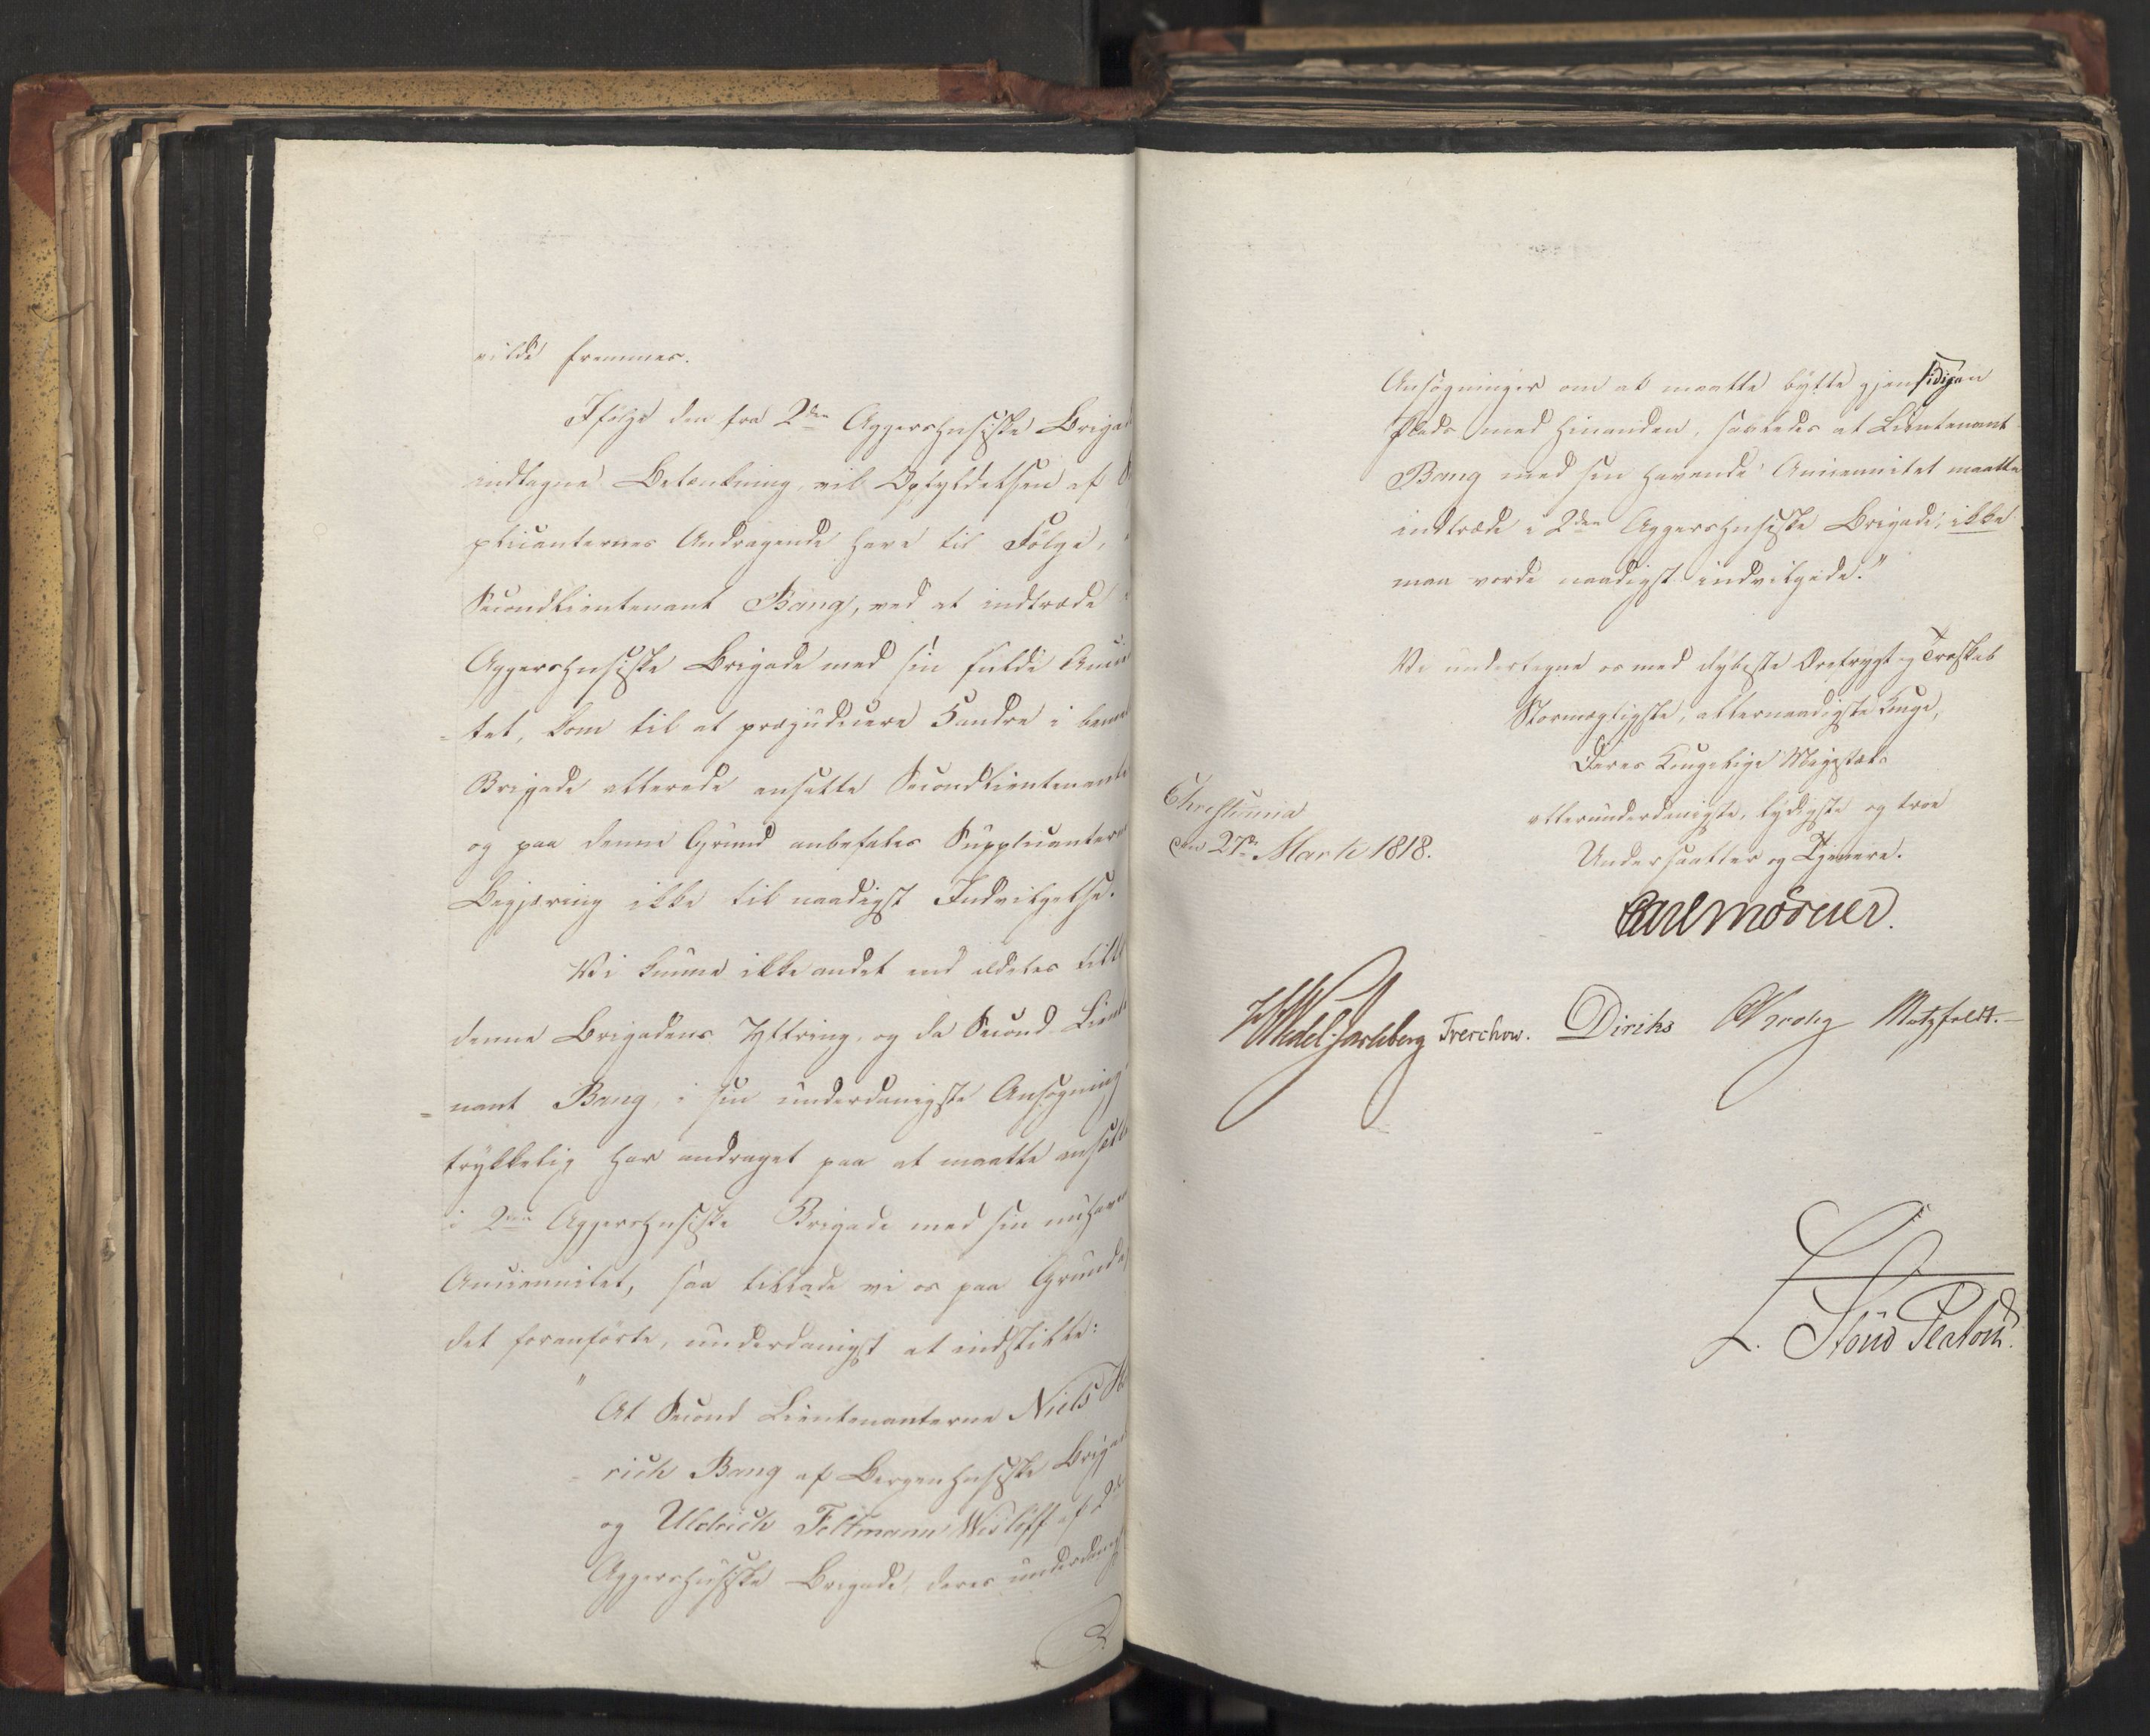 vilde fremmes.
Ifølge den fra 2den Aggershusiske Brigad
indtagne Betænkning, vil Opfyldelsen af
plicanternes Andragende have til Følge,
Secondlieutenant Bang, ved at indtræde
Aggershusiske Brigade med sin fulde Ancie
=tet, kom til at præjudicere 5 andre i benæ
Brigade allerede ansatte Secondlieutenante
og paa denne Grund anbefales Supplicantern
Begjæring ikke til naadigst Indvilgelse.
Vi kunne ikke andet end aldeles till
denne Brigadens Yttring, og da Second Lieut
=nant Bang, i sin underdanigste Ansøgning
trykkelig har andraget paa at maatte ansætt
i 2den Aggershusiske Brigade med sin nuhave
Anciennitet, saa tillade vi os paa Grund a
det foranførte, underdanigst at indstille:
"At Second Lieutenanterne Niels
=rich Bang af Bergenhusiske Brigad
og Uldrich Feltmann Wisløff af 2de
Aggershusiske Brigade, deres underdanigst
Ansøgninger om at maatte bytte gjensidigen
Plads med hinanden, saaledes at Lieutenant
Bang med sin havende Anciennitet maatte
indtræde i 2den Aggershusiske Brigade, ikke
maa vorde naadigst indvilgede."
Vi undertegne os med dybeste Ærefrygt og Troskab
Stormægtigste, allernaadigste Konge,
Deres Kongelige Majestæts
allerunderdanigste, lydigste og troe
Undersaatter og Tjenere.
Christiania
den 27de Marts 1818.
Carl Mörner.
HWedel Jarlsberg Treschow. Diriks Krohg Motzfeldt.
L. Stoud Platou